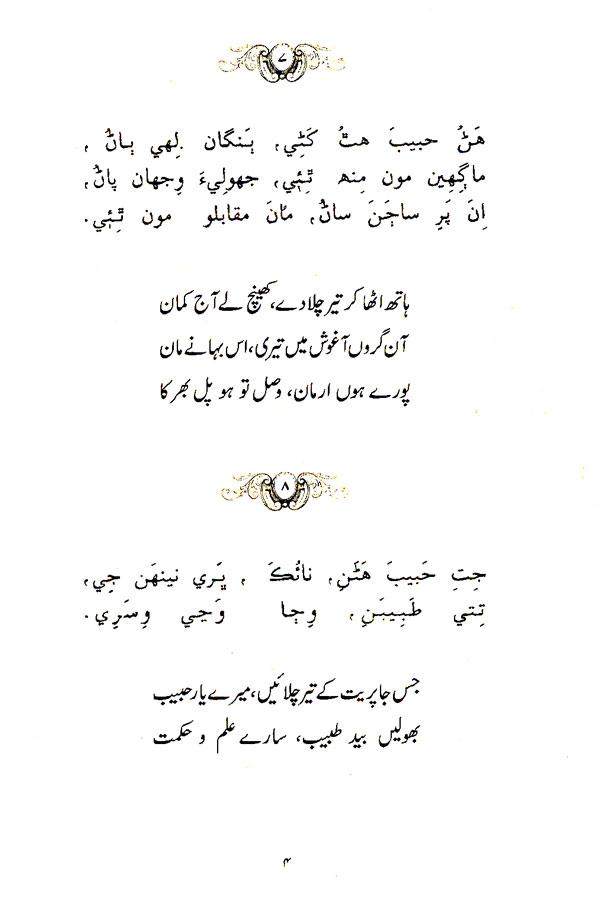 ۷
هَڻُ حبيبَ هٿُ کَڻِي، ٻَنگان لِهي ٻاڻُ،
ماڳِهين مون مِنھ ٿِئي، جهولِيءَ وِجهان پاڻُ،
اِنَ پَرِ ساڄَنَ ساڻُ، مَانَ مقابلو مون ٿِئي.
ہاتھ اٹھا کر تیر چلا دے، کھینچ لے آج کمان
آن گروں آغوش میں تیری، اس بہانے مان
پورے ہوں ارمان، وصل تو ہو پل بھر کا
۸
جِتِ حَبيبَ هَڻَنِ، نائُڪَ، ڀَري نينهَن جِي،
تِتي طَبِيبَنِ، وِڄا وَڃي وِسَرِي.
جس جا پریت کے تیر چلائیں، میرے یار حبیب
بھولیں بید طبیب، سارے علم و حکمت
۴